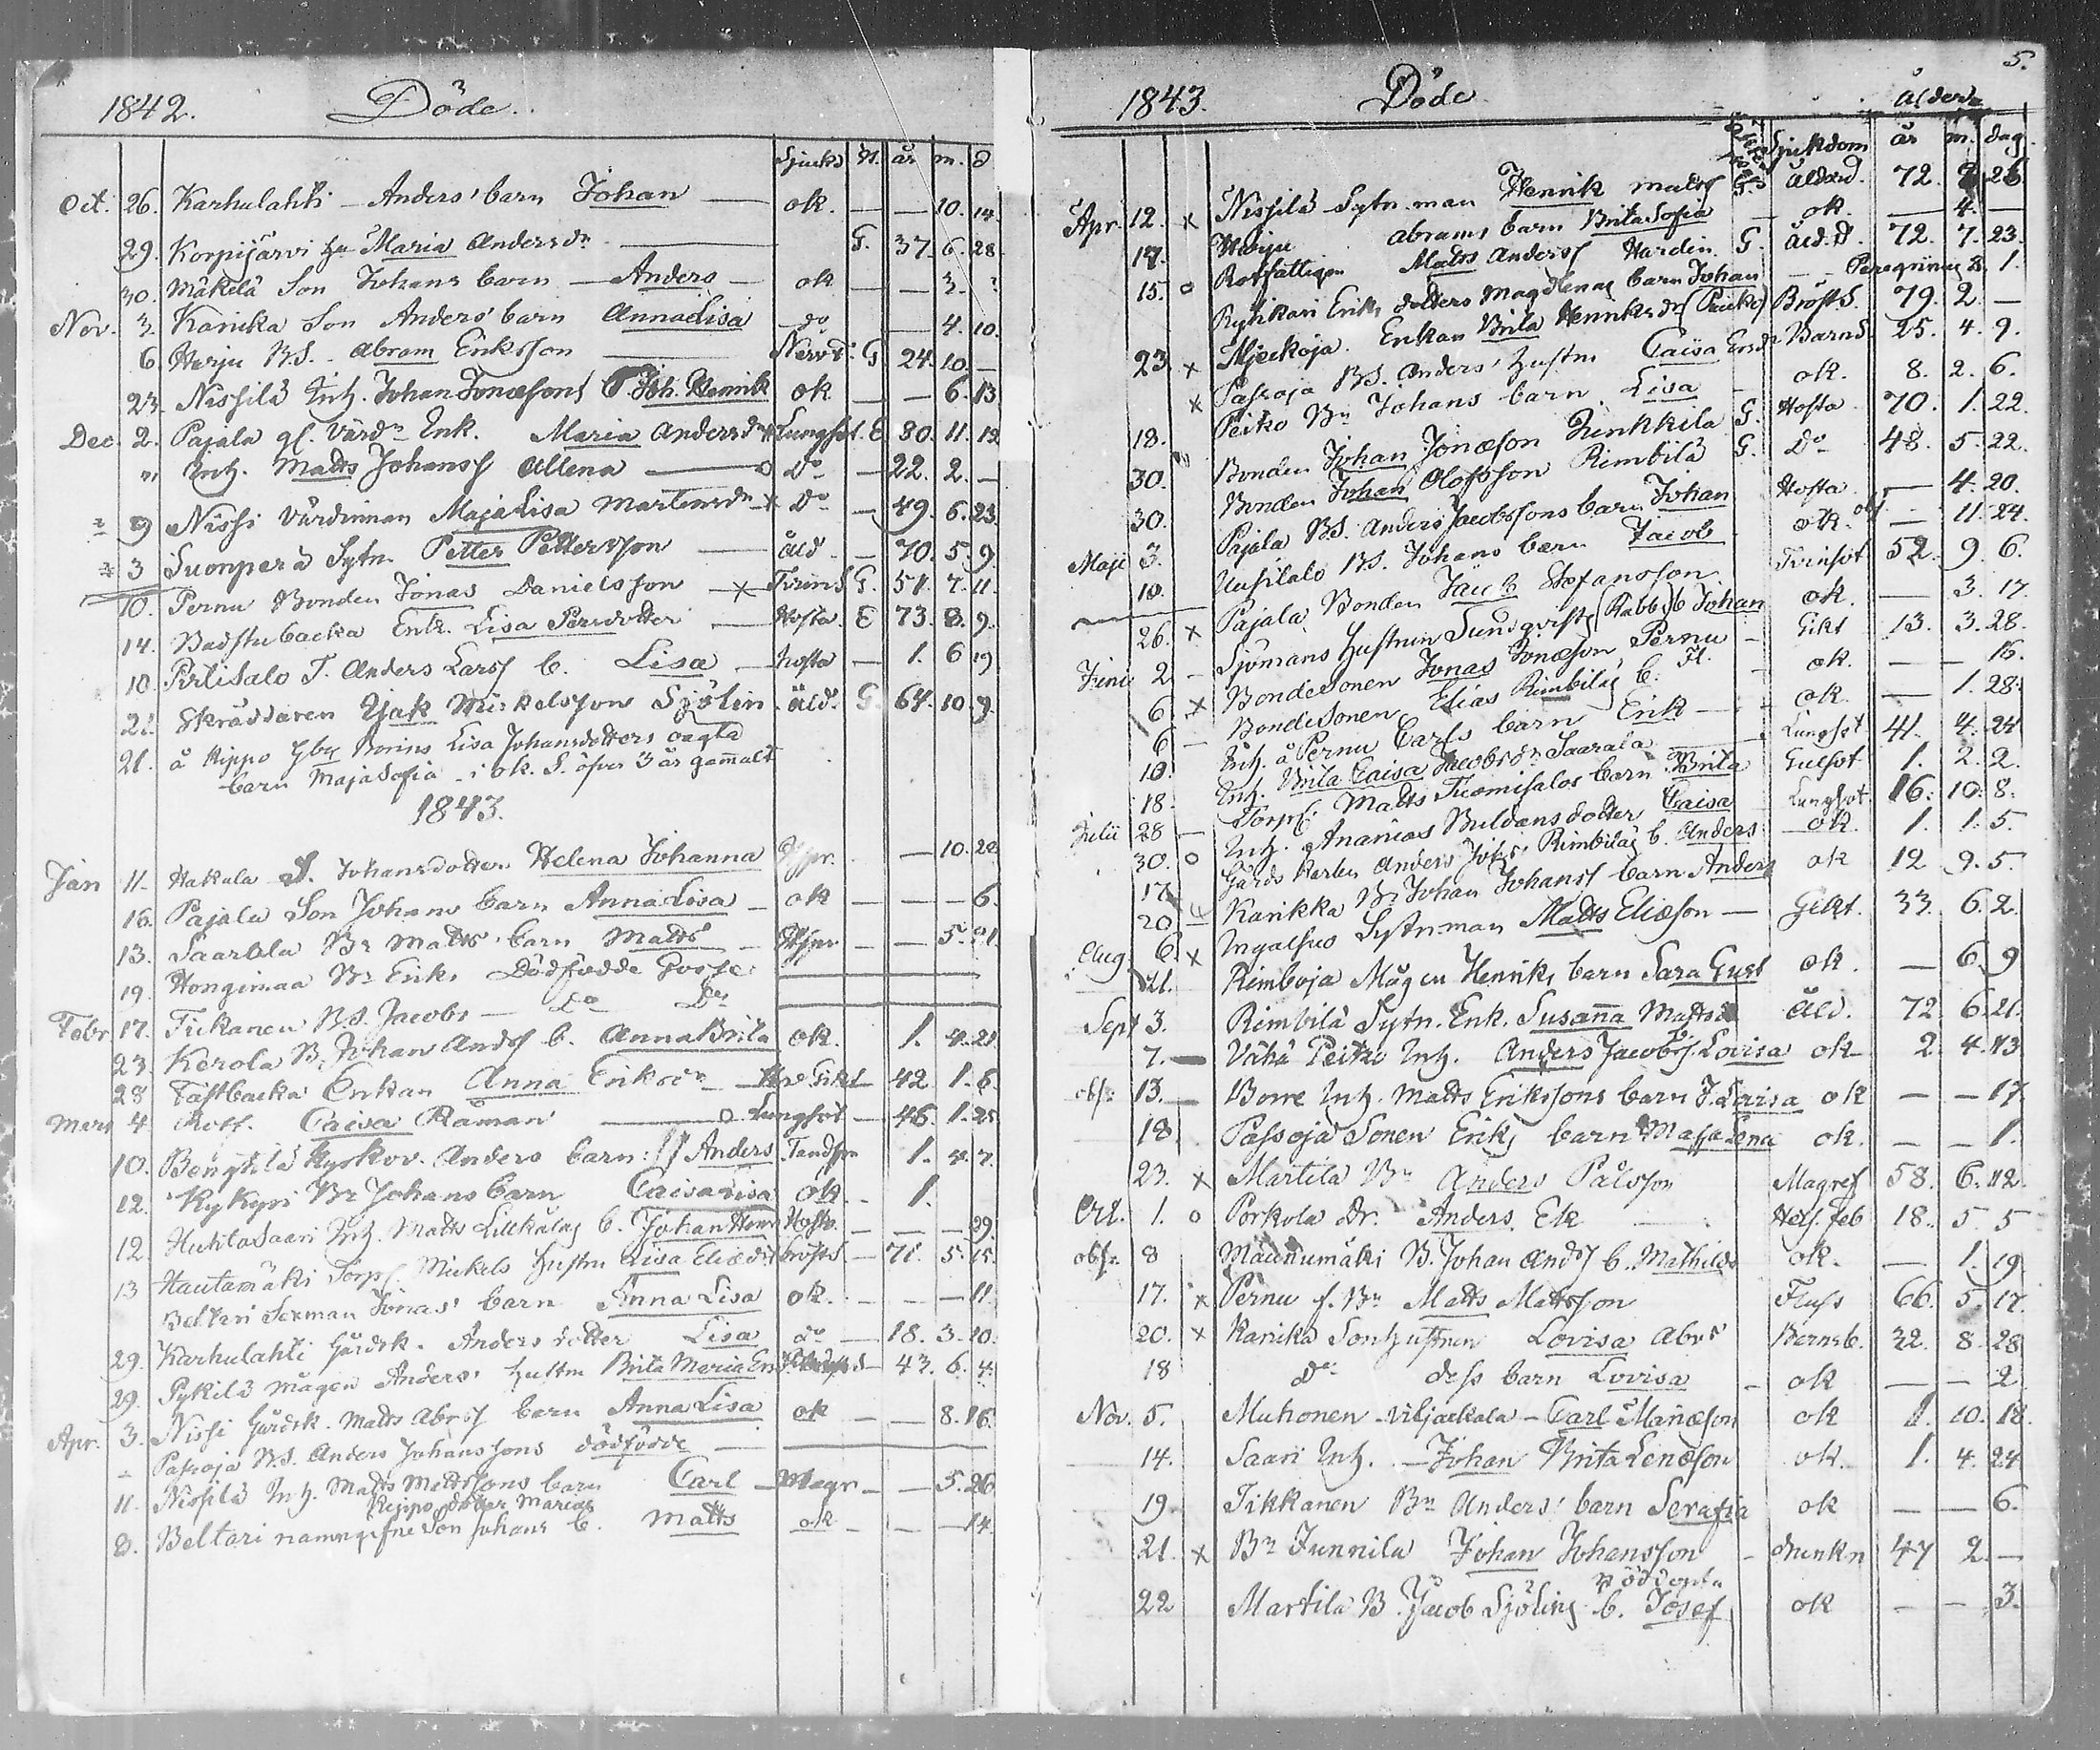 1842. Döde.
Sjukd G. år m. d
Oct. 26. Karhulahti – Anders' barn Johan — ok. — — 10. 14.
29. Korpijärvi Maria Andersdr — G. 37. 6. 28.
30. Mäkelä Son Johans barn — Anders — ok — — 3.
Nov. 3. Karikka Son Anders' barn Anna Lisa do — 4. 10.
6. Harju B.S. Abram Eriksson G. 24. 10. —
23. Nissilä Inh. Johan Jonæsons Joh. Henrik ok — — 6. 13
Dec. 2. Pajala gl. Värdn Enk. Maria Andersdr Lungsot. E 80. 11. 13
" Inh. Matts Johans Allena — o Do — 22. 2. —
9 Nissi Värdinnan Maja Lisa Martensdr x Do — 49. 6. 23.
3 Suonperä Sytn. Petter Pettersson — åld — 70. 5. 9.
10. Pernu Bonden Jonas Danielsson — x Tvins. G. 51. 7. 11.
14. Badstubacka Enk. Lisa Persdotter — Hosta. E 73. 8. 9.
10 Pirtisalo T. Anders Larss b. Lisa — hosta — 1. 6 19
21. Skräddaren Isak Mickelsson Sjölin. åld. G. 64. 10. 9.
21. å Rippo Lisa Johansdotters oägta
barn Maja Sofia i ok. S. öfver 3 år gam̄alt
1843.
Jan 11. Hakala S. Johansdotter Helena Johanna — 10. 20
16. Pajala Son Johans barn Anna Lisa — ok — — — 6.
13. Saarela Br Matts' barn Matts — — 5. 21.
19. Honginmaa Br Eriks Dödfödde Gosse
Febr 17. Tickanen B.S. Jacobs — Do Do
23. Kerola B. Johan Ands b. Anna Brita ok. 1. 4. 21
28 Fastbacka Enkan Anna Eriksdr 42. 1. 6.
Mars 4 Rotf. Caisa Råman — o Lungsot — 46. 1. 25
10. Bengtilä Anders barn: Anders 1. 4. 7.
12. Kykyri Br Johans barn Caisa Lisa ok. — 1.
12. Huhtasaari Inh. Matts b. Johan Henr Hosta. — — — 29.
13 Hautamäki Torp. Mickels hustru Lisa Eliædr bröst S. — 71. 5. 15.
Beltari Sexman Jonas' barn Anna Lisa ok. — — — 11.
29. Karhulahti Gårdsk. Anders dotter Lisa do — 18. 3. 10.
29. Pykilä mågen Anders' hustru Brita Maria — 43. 6. 4.
Apr. 3. Nissi Gårdsk. Matts Abrss barn Anna Lisa ok — — 8. 16.
Passoja B.S. Anders Johanssons dödfödde —
11. Nissilä Inh. Matts Mattssons barn Carl — Magr — — 5. 26
Rippo dotter Marias
8. Beltari namngifne Son Johans b. Matts ok — — — 14
5.
1843. Döde. Ålder
Sjukdom år m. dag
Apr. 12. x Nissilä Sytn.man Henrik Matss G. Ålderd. 72. 26
14. Harju Abrams barn Brita Sofia — ok. — 4. —
15. o Rotfattigen Matts Anderss Hardin G. Åld. d. 72. 7. 23.
Ryhkari Eriks dotters Magdlenas barn Johan — 1.
23 x Mjeckoja Enkan Brita Henriksdr (Peitko) Bröst S. 79. 2. —
x Passoja B.S. Anders' hustru Caisa Ersdr Barns. 25. 4. 9.
18. Peitko Br Johans barn Lisa — ok. 8. 2. 6.
30. Bonden Johan Jonæson Junkkila G. Hosta. 70. 1. 22.
30. Bonden Johan Olofsson Rimbilä G. Do 48. 5. 22.
Maji 3. Pajala B.S. Anders Jacobssons barn Johan Hosta — 4. 20.
10. Uusitalo B.S. Johans barn Jacob ok. — 11. 24.
26. x Pajala Bonden Jacob Stefansson Tvinsot 52. 9. 6.
Juni 2. – Sjömans hustrun Sundqvists (Rabb) b Johan ok. — 3. 17.
6. x Bondesonen Jonas Jonæson Pernu — Gikt 13. 3. 28.
6 – Bondesonen Elias Rimbiläs b. Fl. — ok. — — 16.
10. Inh. å Pernu Carls barn Erik — ok. — 1. 28.
18. Inh. Brita Caisa Jacobsdr Saarala Lungsot 41. 4. 24
Julii 28 – Torp. Matts Tuomisalos barn Brita Gulsot 1. 2. 2.
30. o Inh. Ananias Buldans dotter Caisa Lungsot. 16. 10. 8.
17 Gårds Karlen Anders Rimbiläs b. Anders ok. 1. 1. 5.
20 Karikka Br Johan Johanss barn Anders ok 12 9. 5.
Aug. 6. x Ingalsuo Sytnman Matts Eliæson — Gikt. 33. 6. 2.
21. Rimboja Mågen Henriks barn Sara Gust ok. — 6. 9
Sept 3. Rimbilä Sytn. Enk. Susan̄a Mattsdr Åld. 72. 6. 21.
7. — Vähä Peitko Inh. Anders Jacobs b. Lovisa ok 2. 4. 13
obs: 13. — Borre Inh. Matts Erikssons barn J. Lovisa ok — — 17.
18. Passoja Sonen Eriks barn Maja Lena ok. — — 1.
23. x Martila Br Anders Pålsson Magref 58. 6. 12.
Oct. 1. o Porkola Dr. Anders Ek — 18. 5. 5
obs: 8 Maunumäki B. Johan Ands b. Mathilda ok. — 1. 19.
17. x Pernu f. Br Matts Mattsson Fluss 66. 5. 17.
20. x Karikka Sonhustrun Lovisa Abrdr Barnsb. 32. 8. 28
18 do dess barn Lovisa — ok — — 2
Nov. 5. Muhonen – Viljackala – Carl Manæson ok 1. 10. 18
14. Saari Inh. — Johan Brita Lenæson ok. 1. 4. 24
19. Tikkanen Br Anders' barn Serafia ok — — 6.
21. x Br Junnila Johan Johansson — drunkn 47 2. —
nöddöpta
22 Martila B. Jacob Sjölins b. Josef ok — — 3.